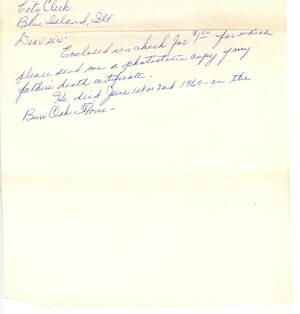 City Clerk.
Blue Island, Ill.
Dear sir:
Enclosed is a check for $1.00 for which
please send me a photostatic copy of my
father's death certificate.
He died June 1st or 2nd 1960 - in the
Burr Oak Home -